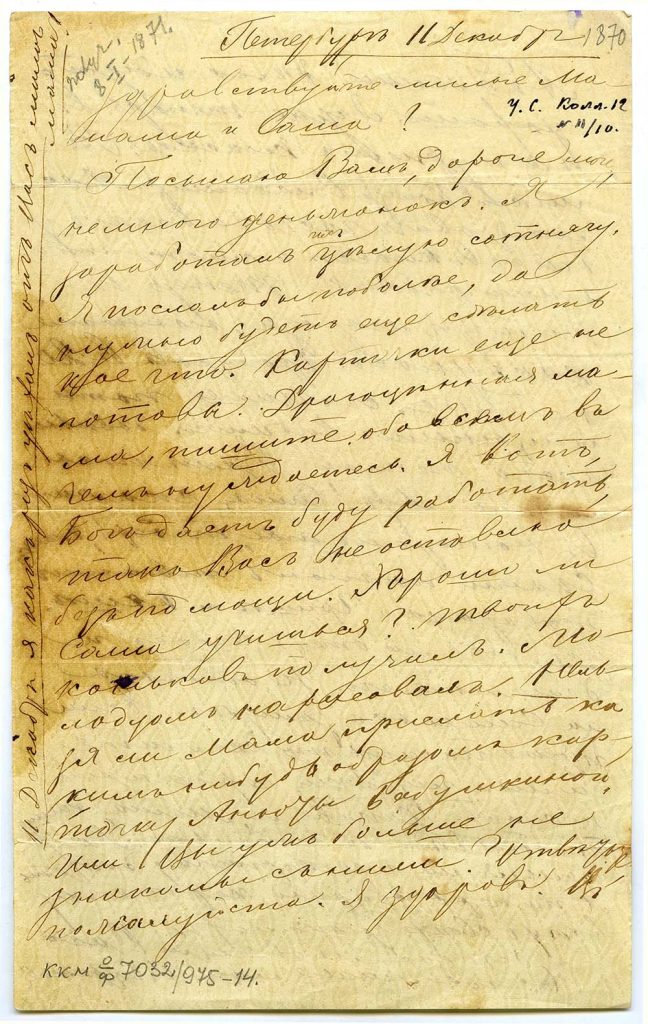 Петербургъ 11 Декабря 1870
Здравствуйте милые Ма-
маша и Саша?
У. С. Колл. 12
№ 11/10.
8-I-1871.
Посылаю Вамъ, дорогие мои,
немного деньжонокъ. Я
заработалъ цѣлую сотнягу.
Я послалъ бы поболѣе, да
нужно будетъ еще сдѣлать
кое что. Карточки еще не
готовы. Драгоцѣнная ма-
ма, пишите обо всемъ въ
чемъ нуждаетесь. Я вотъ,
Богъ дастъ буду работать,
то Васъ не оставлю
безъ помощи. Хорошо ли
Саша учиться? твоихъ
коньковъ получилъ. Мо-
лодцомъ нарисовалъ. Нель-
зя ли Мама прислать ка-
кимъ нибудь образомъ кар-
точку Анюты Бабушкиной,
или Вы ужъ больше не
знакомы съ ними?
пожалуйста. Я здоровъ.
11 Декабря я какъ разъ уѣхалъ отъ Васъ милая
мама!
ККМ О/Ф 7032/975-14.